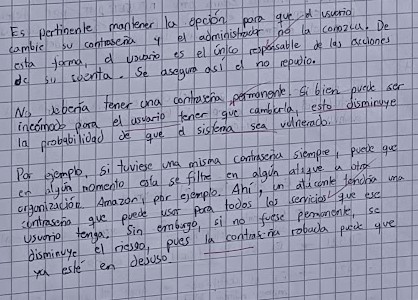 Es pertinente mantener la opción para que el usuario
cambie su contraseña y el administrador no la conozca. De
esta forma, el usuario es el único responsable de las acciones
de su cuenta. Se asegura así el no repudio.
No debería tener una contraseña permanente. Si bien puede ser
incómodo para el usuario tener que cambiarla, esto disminuye
la probabilidad de que el sistema sea vulnerado.
Por ejemplo, si tuviese una misma contraseña siempre, puede que
en algún momento esta se filtre en algún ataque a otra
organización Amazon, por ejemplo. Ahí, un atacante tendría una
contraseña que puede usar para todos los servicios que ese
usuario tenga. Sin embargo, si no fuese permanente, se
disminuye el riesgo, pues la contraseña robada puede que
ya esté en desuso.